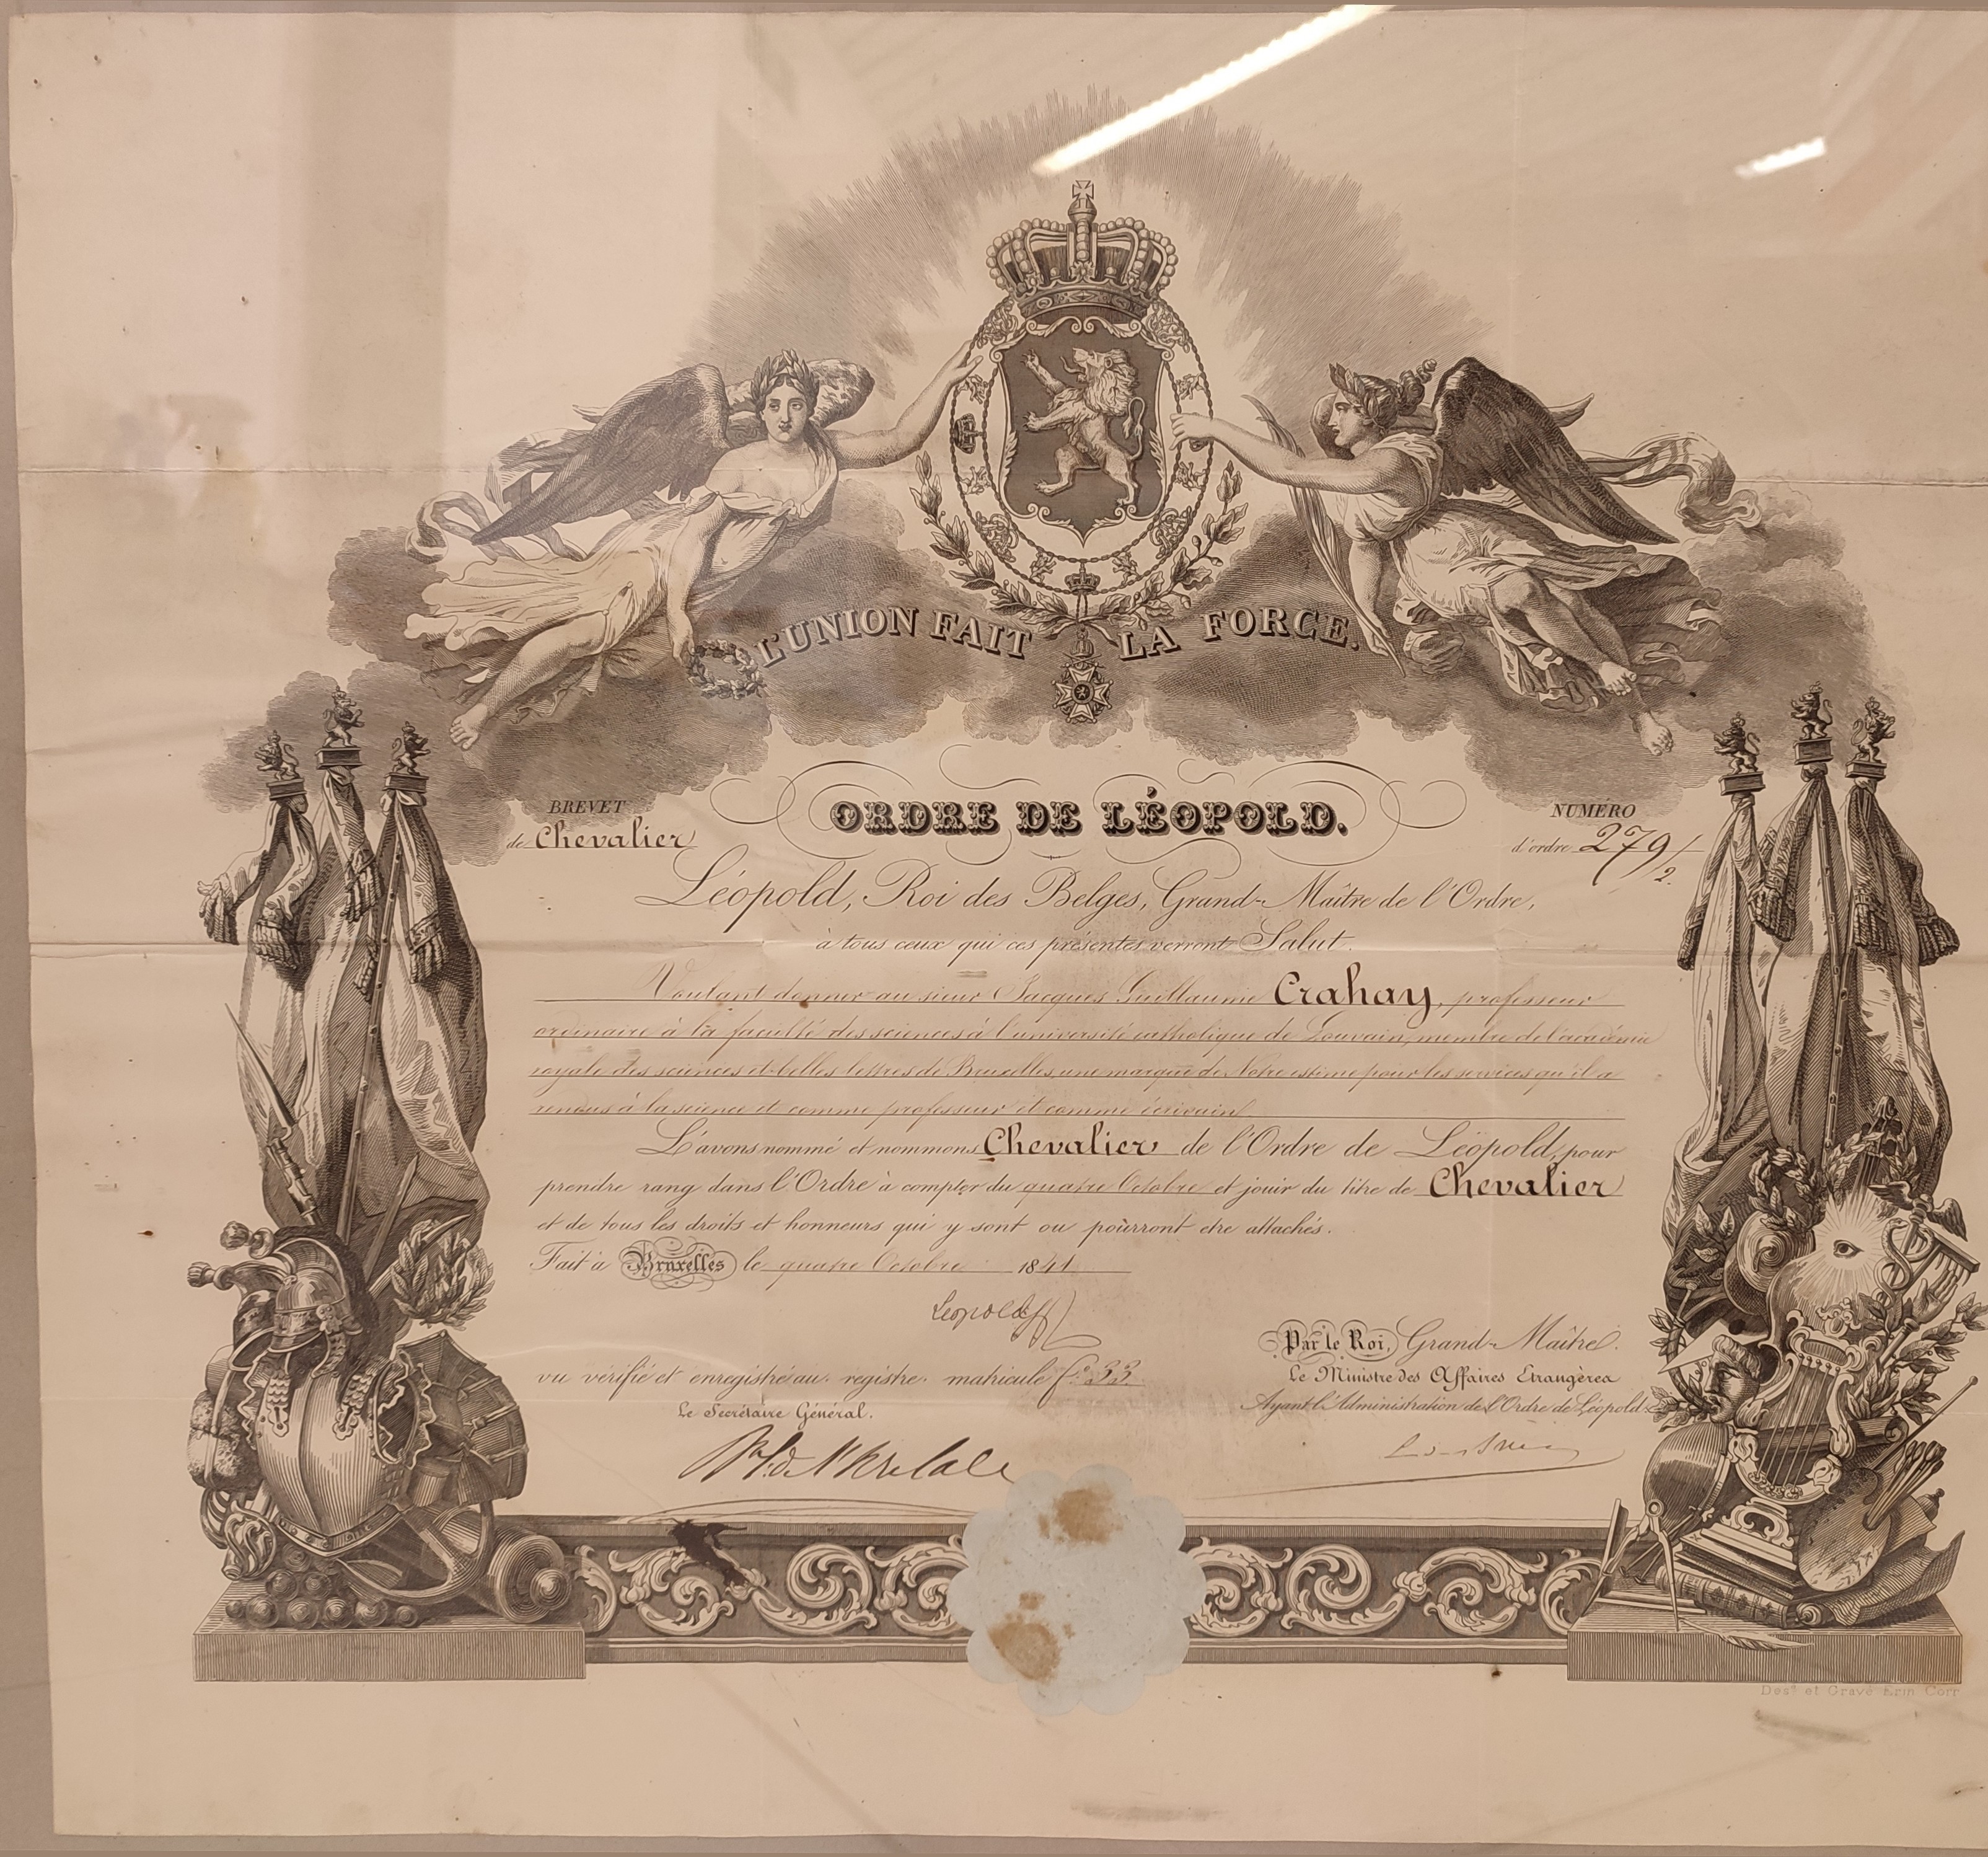 L'UNION FAIT LA FORCE.
BREVET
de Chevalier
ORDRE DE LÉOPOLD.
NUMÉRO
d'ordre 279/2.
Léopold, Roi des Belges, Grand-Maître de l'Ordre,
à tous ceux qui ces présentes verront Salut.
Voulant donner au sieur Jacques Guillaume Crahay, professeur
ordinaire à la faculté des sciences à l'université catholique de Louvain, membre de l'académie
royale des sciences et belles lettres de Bruxelles, une marque de Notre estime pour les services qu'il a
rendus à la science et comme professeur et comme écrivain
L'avons nommé et nommons Chevalier de l'Ordre de Léopold, pour
prendre rang dans l'Ordre à compter du quatre Octobre et jouir du titre de Chevalier
et de tous les droits et honneurs qui y sont ou pourront etre attachés.
Fait à Bruxelles le quatre Octobre 1841
Leopold
Par le Roi, Grand-Maître.
vu vérifié et enregistré au registre matricule fo. 33.
Le Ministre des Affaires Etrangères
Le Secrétaire Général.
Ayant l'Administration de l'Ordre de Léopold
Desé et Gravé Erin Corr